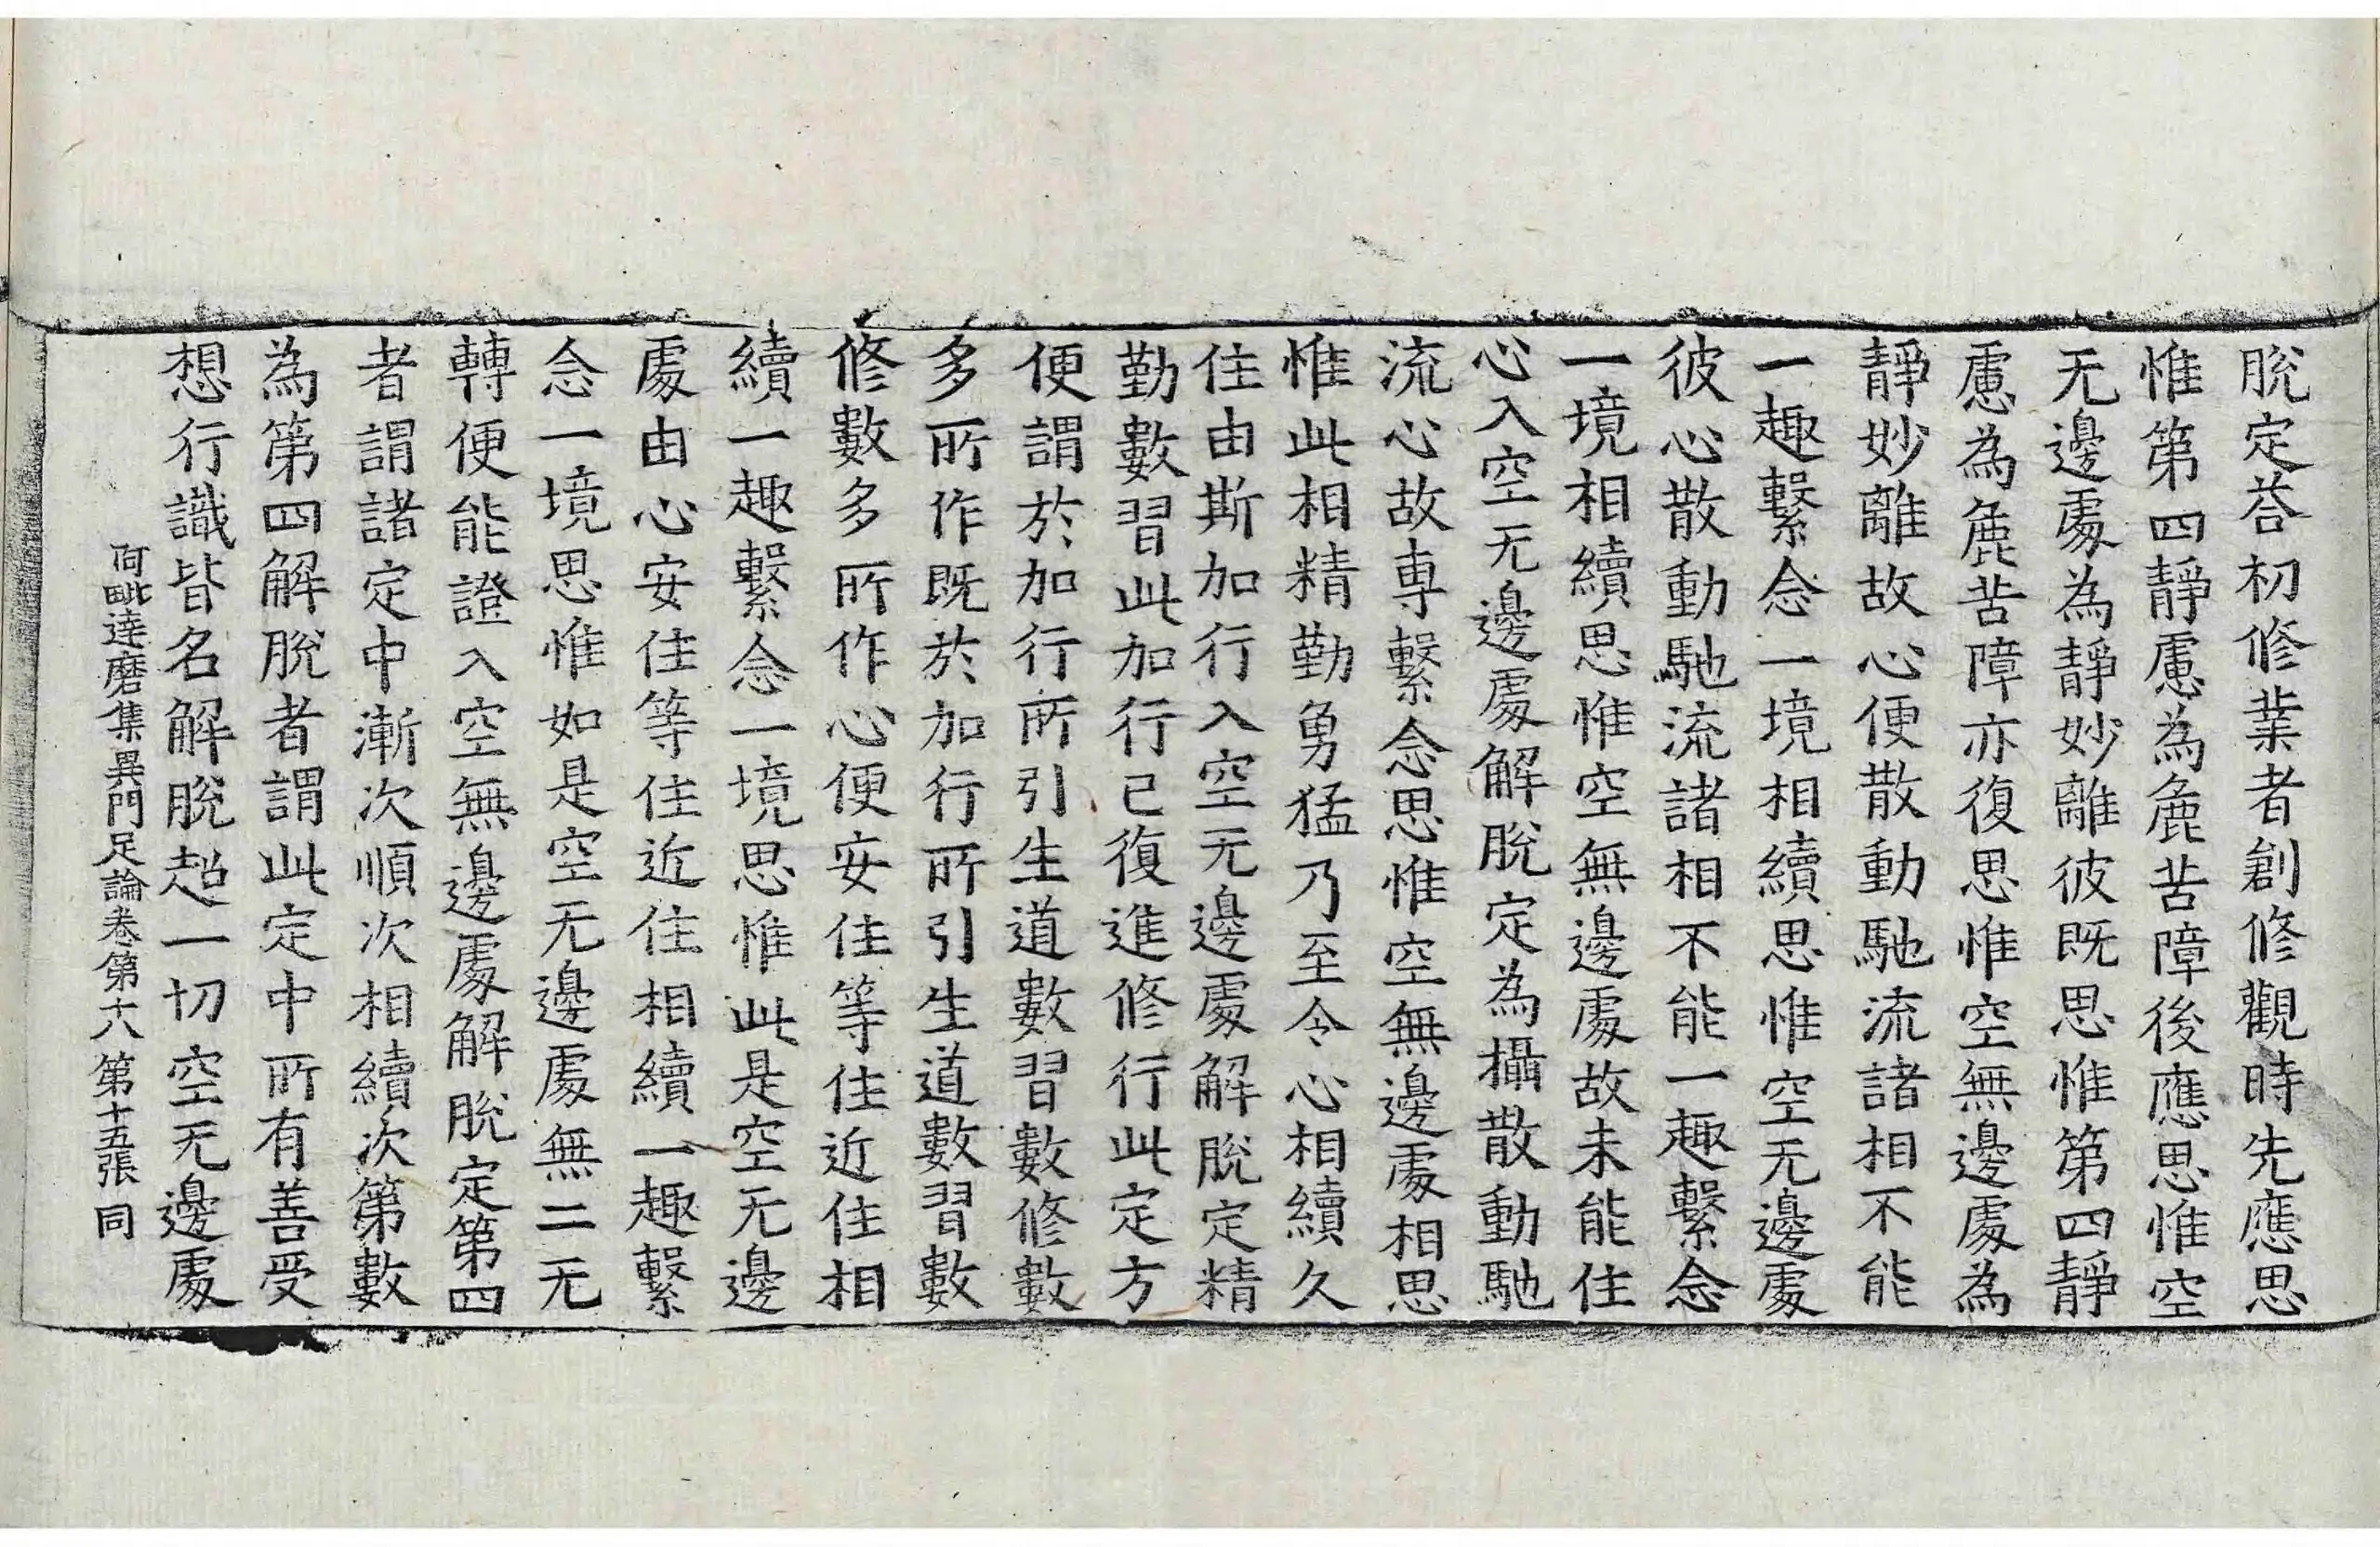 脫定荅初修業者創修觀時先應思
惟第四靜慮為麁苦障後應思惟空
无邊處為靜妙離彼既思惟第四靜
慮為麁苦障亦復思惟空無邊處為
靜妙離故心便散動馳流諸相不能
一趣繫念一境相續思惟空无邊處
彼心散動馳流諸相不能一趣繫念
一境相續思惟空無邊處故未能住
心入空无邊處解脫定為攝散動馳
流心故專繫念思惟空無邊處相思
惟此相精勤勇猛乃至令心相續久
住由斯加行入空无邊處解脫定精
勤數習此加行已復進修行此定方
便謂於加行所引生道數習數修數
多所作既於加行所引生道數習數
修數多所作心便安住等住近住相
續一趣繫念一境思惟此是空无邊
處由心安住等住近住相續一趣繫
念一境思惟如是空无邊處無二无
轉便能證入空無邊處解脫定第四
者謂諸定中漸次順次相續次第數
為第四解脫者謂此定中所有善受
想行識皆名解脫超一切空无邊處
阿毗達磨集異門足論卷第十八 第十五張 同